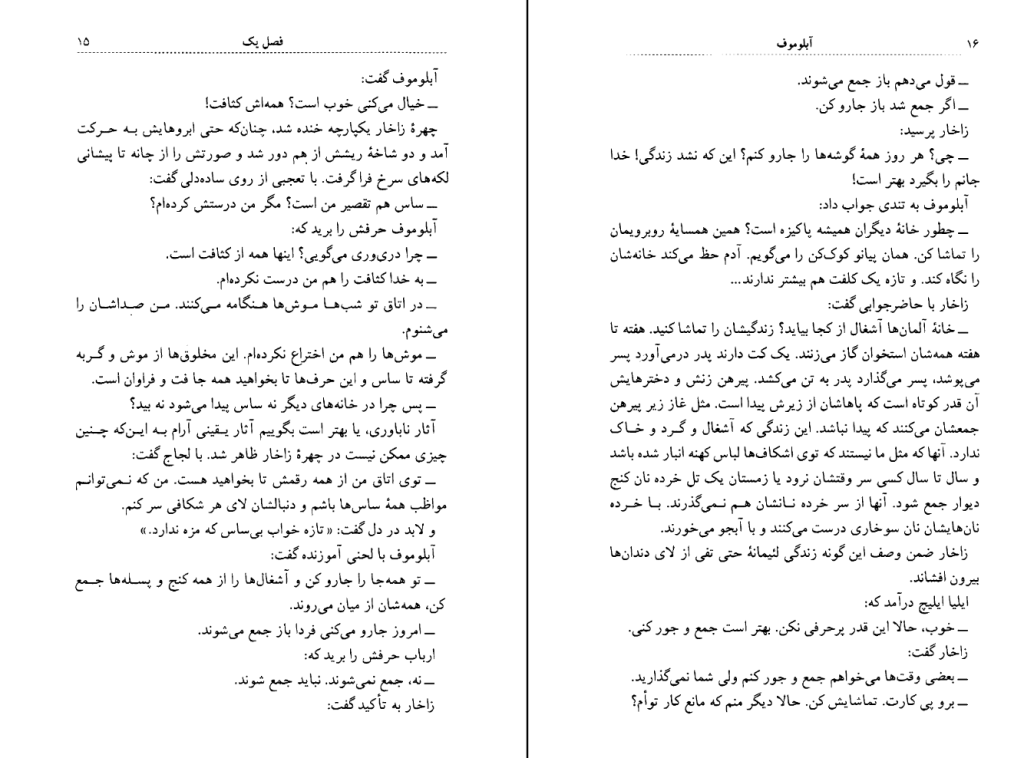 فصل یک ۱۵
آبلوموف گفت:
ــ خیال می‌کنی خوب است؟ همه‌اش کثافت!
چهرهٔ زاخار یکپارچه خنده شد، چنان‌که حتی ابروهایش به حرکت
آمد و دو شاخهٔ ریشش از هم دور شد و صورتش را از چانه تا پیشانی
لکه‌های سرخ فراگرفت. با تعجبی از روی ساده‌دلی گفت:
ــ ساس هم تقصیر من است؟ مگر من درستش کرده‌ام؟
آبلوموف حرفش را برید که:
ــ چرا دری‌وری می‌گویی؟ اینها همه از کثافت است.
ــ به خدا کثافت را هم من درست نکرده‌ام.
ــ در اتاق تو شب‌ها موش‌ها هنگامه می‌کنند. من صداشان را
می‌شنوم.
ــ موش‌ها را هم من اختراع نکرده‌ام. این مخلوق‌ها از موش و گربه
گرفته تا ساس و این حرف‌ها تا بخواهید همه جا فت و فراوان است.
ــ پس چرا در خانه‌های دیگر نه ساس پیدا می‌شود نه بید؟
آثار ناباوری، یا بهتر است بگوییم آثار یقینی آرام به این‌که چنین
چیزی ممکن نیست در چهرهٔ زاخار ظاهر شد. با لجاج گفت:
ــ توی اتاق من از همه رقمش تا بخواهید هست. من که نمی‌توانم
مواظب همهٔ ساس‌ها باشم و دنبالشان لای هر شکافی سر کنم.
و لابد در دل گفت: «تازه خواب بی‌ساس که مزه ندارد.»
آبلوموف با لحنی آموزنده گفت:
ــ تو همه‌جا را جارو کن و آشغال‌ها را از همه کنج و پسله‌ها جمع
کن، همه‌شان از میان می‌روند.
ــ امروز جارو می‌کنی فردا باز جمع می‌شوند.
ارباب حرفش را برید که:
ــ نه، جمع نمی‌شوند. نباید جمع شوند.
زاخار به تأکید گفت:
۱۶ آبلوموف
ــ قول می‌دهم باز جمع می‌شوند.
ــ اگر جمع شد باز جارو کن.
زاخار پرسید:
ــ چی؟ هر روز همهٔ گوشه‌ها را جارو کنم؟ این که نشد زندگی! خدا
جانم را بگیرد بهتر است!
آبلوموف به تندی جواب داد:
ــ چطور خانهٔ دیگران همیشه پاکیزه است؟ همین همسایهٔ روبرویمان
را تماشا کن. همان پیانو کوک‌کن را می‌گویم. آدم حظ می‌کند خانه‌شان
را نگاه کند. و تازه یک کلفت هم بیشتر ندارند...
زاخار با حاضرجوابی گفت:
ــ خانهٔ آلمان‌ها آشغال از کجا بیاید؟ زندگیشان را تماشا کنید. هفته تا
هفته همه‌شان استخوان گاز می‌زنند. یک کت دارند پدر درمی‌آورد پسر
می‌پوشد، پسر می‌گذارد پدر به تن می‌کشد. پیرهن زنش و دخترهایش
آن قدر کوتاه است که پاهاشان از زیرش پیدا است. مثل غاز زیر پیرهن
جمعشان می‌کنند که پیدا نباشد. این زندگی که آشغال و گرد و خاک
ندارد. آنها که مثل ما نیستند که توی اشکاف‌ها لباس کهنه انبار شده باشد
و سال تا سال کسی سر وقتشان نرود یا زمستان یک تل خرده نان کنج
دیوار جمع شود. آنها از سر خرده نانشان هم نمی‌گذرند. با خرده
نان‌هایشان نان سوخاری درست می‌کنند و با آبجو می‌خورند.
زاخار ضمن وصف این گونه زندگی لئیمانهٔ حتی تفی از لای دندان‌ها
بیرون افشاند.
ایلیا ایلیچ درآمد که:
ــ خوب، حالا این قدر پرحرفی نکن. بهتر است جمع و جور کنی.
زاخار گفت:
ــ بعضی وقت‌ها می‌خواهم جمع و جور کنم ولی شما نمی‌گذارید.
ــ برو پی کارت. تماشایش کن. حالا دیگر منم که مانع کار توأم؟